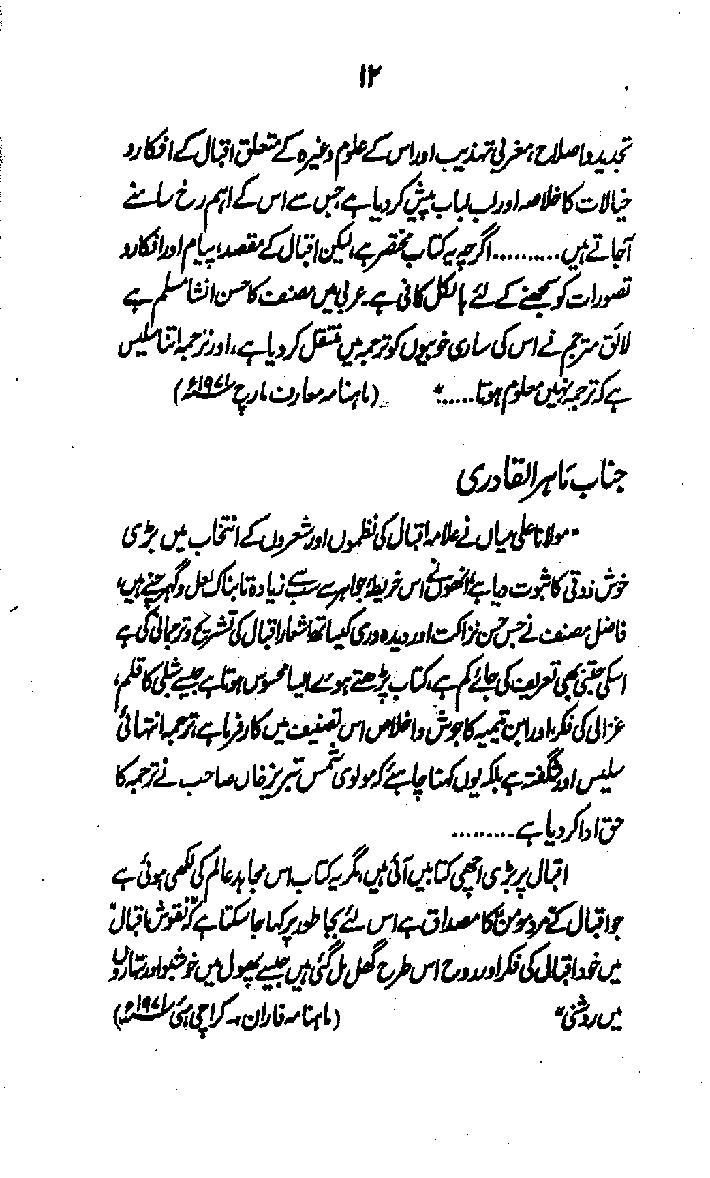 ۱۲
تجدید و اصلاح، مغربی تہذیب اور اس کے علوم وغیرہ کے متعلق اقبال کے افکار و
خیالات کا خلاصہ اور لب لباب پیش کر دیا ہے جس سے اس کے اہم رخ سامنے
آجاتے ہیں .......... اگرچہ یہ کتاب مختصر ہے، لیکن اقبال کے مقصد، پیام اور افکار و
تصورات کو سمجھنے کے لئے بالکل کافی ہے۔ عربی میں مصنف کا حسن انشا مسلم ہے
لائق مترجم نے اس کی ساری خوبیوں کو ترجمہ میں منتقل کر دیا ہے، اور ترجمہ اتنا سلیس
ہے کہ ترجمہ نہیں معلوم ہوتا......" (ماہنامہ معارف مارچ ۱۹۷۱ء)
جناب ماہر القادری
"مولانا علی میاں نے علامہ اقبال کی نظموں اور شعروں کے انتخاب میں بڑی
خوش ذوقی کا ثبوت دیا ہے انھوں نے اس خریطۂ جواہر سے سب سے زیادہ تابناک لعل و گہر چنے ہیں،
فاضل مصنف نے جس حسن نزاکت اور دیدہ وری کیساتھ اشعار اقبال کی تشریح و ترجمانی کی ہے
اسکی جتنی بھی تعریف کی جائے کم ہے، کتاب پڑھتے ہوئے ایسا محسوس ہوتا ہے جیسے شبلی کا قلم،
غزالی کی فکر، اور ابن تیمیہ کا جوش و اخلاص اس تصنیف میں کارفرما ہے، ترجمہ انتہائی
سلیس اور شگفتہ ہے بلکہ یوں کہنا چاہئے کہ مولوی شمس تبریز خاں صاحب نے ترجمہ کا
حق ادا کر دیا ہے .........
اقبال پر بڑی اچھی کتابیں آئی ہیں، مگر یہ کتاب اس مجاہد عالم کی لکھی ہوئی ہے
جو اقبال کے مرد مومن کا مصداق ہے اس لئے بجا طور پر کہا جا سکتا ہے کہ "نقوش اقبال"
میں خود اقبال کی فکر اور روح اس طرح گھل مل گئی ہیں جیسے پھول میں خوشبو اور ستاروں
میں روشنی" (ماہنامہ فاران۔ کراچی مئی ۱۹۷۱ء)